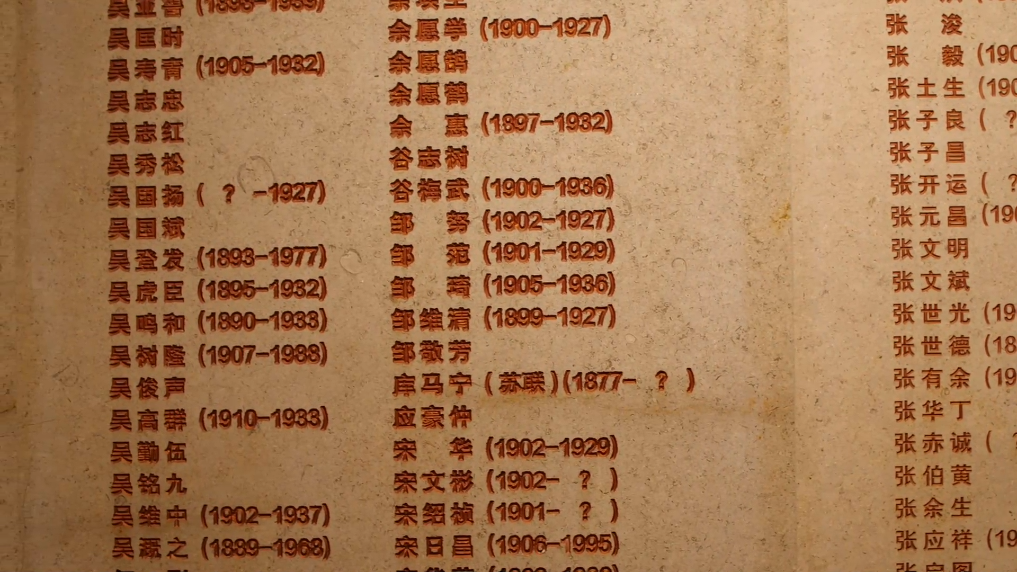 吴匡时
吴寿青 (1905-1932)
吴志忠
吴志红
吴秀松
吴国扬 ( ? -1927)
吴国斌
吴登发 (1893-1977)
吴虎臣 (1895-1932)
吴鸣和 (1890-1933)
吴树隆 (1907-1988)
吴俊声
吴高群 (1910-1933)
吴勤伍
吴铭九
吴维中 (1902-1937)
吴之 (1889-1968)
余愿学 (1900-1927)
余愿鹄
余愿鹤
余 惠 (1897-1932)
谷志树
谷梅武 (1900-1936)
邹 努 (1902-1927)
邹 范 (1901-1929)
邹 琦 (1905-1936)
邹维清 (1899-1927)
邹敬芳
库马宁 (苏联)(1877- ? )
应豪仲
宋 华 (1902-1929)
宋文彬 (1902- ? )
宋绍祯 (1901- ? )
宋日昌 (1906-1995)
张 浚
张 毅 (190
张土生 (190
张子良 ( ?
张子昌
张开运 ( ?
张元昌 (190
张文明
张文斌
张世光 (19
张世德 (18
张有余 (19
张华丁
张赤诚 ( ?
张伯黄
张余生
张应祥 (19